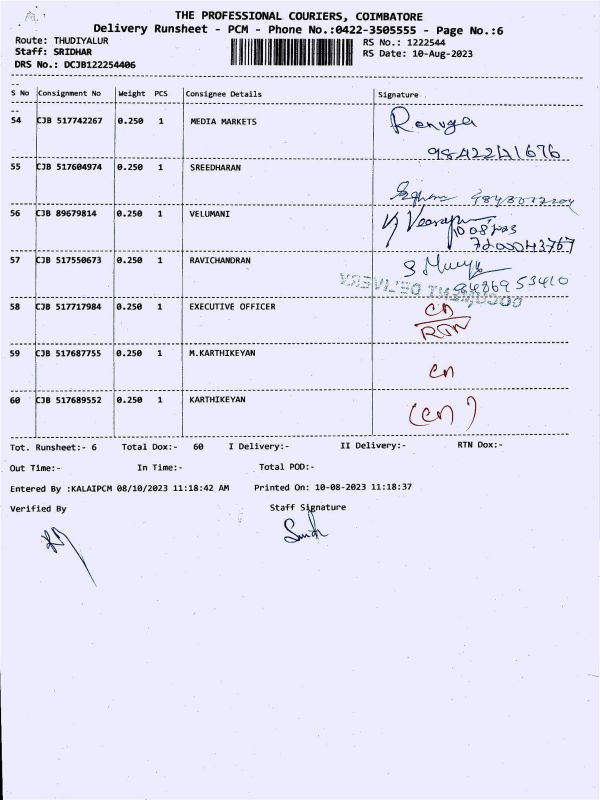 THE PROFESSIONAL COURIERS, COIMBATORE
Delivery Runsheet - PCM - Phone No.:0422-3505555 - Page No.:6
Route: THUDIYALUR
RS No.: 1222544
Staff: SRIDHAR
RS Date: 10-Aug-2023
DRS No.: DCJB122254406
S No Consignment No Weight PCS Consignee Details Signature
54 CJB 517742267 0.250 1 MEDIA MARKETS Renuga
9842241676
55 CJB 517604974 0.250 1 SREEDHARAN
56 CJB 89679814 0.250 1 VELUMANI
57 CJB 517550673 0.250 1 RAVICHANDRAN
9486953410
DOCUMENT DELIVERY
58 CJB 517717984 0.250 1 EXECUTIVE OFFICER CN
RTN
59 CJB 517687755 0.250 1 M.KARTHIKEYAN CN
60 CJB 517689552 0.250 1 KARTHIKEYAN (CN)
Tot. Runsheet:- 6 Total Dox:- 60 I Delivery:- II Delivery:- RTN Dox:-
Out Time:- In Time:- Total POD:-
Entered By :KALAIPCM 08/10/2023 11:18:42 AM Printed On: 10-08-2023 11:18:37
Verified By Staff Signature